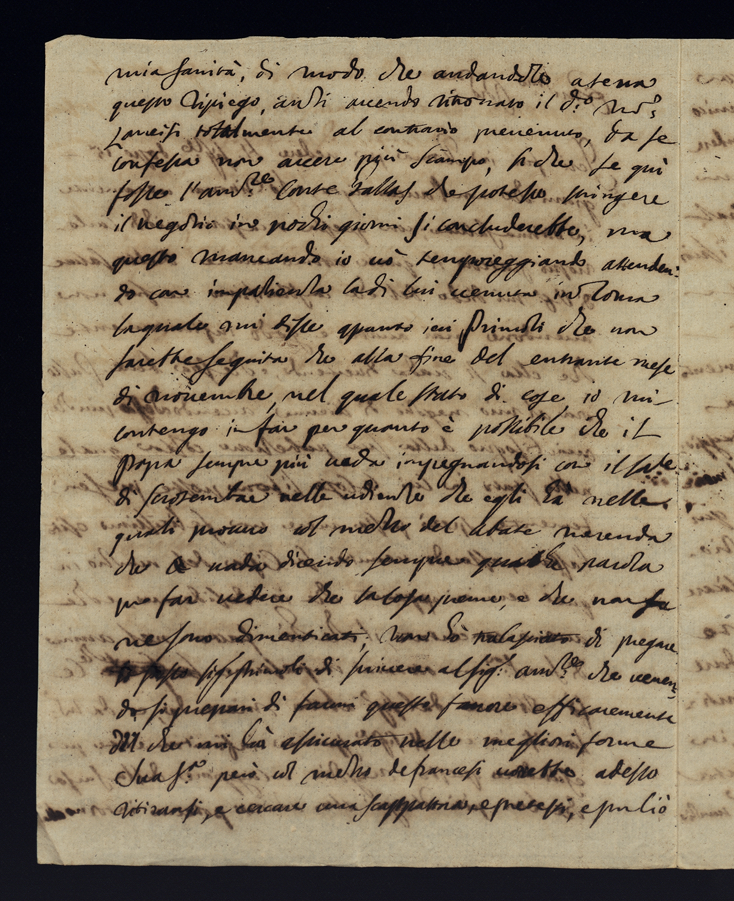 mia sanità, di modo che andandosi a terra
questo ripiego, anzi avendo ritrovato il d.º Mo.r
Lancisi totalmente al contrario prevenuto, da se
confessa non avere più scampo, si che se qui
fosse l'amb.re Conte Gallas che potesse stringere
il negotio in pochi giorni si concluderebbe, ma
questo mancando io vò temporeggiando attenden-
do con impatienza la di lui venuta in Roma
la quale mi disse apunto ieri che non
sarebbe seguita che alla fine del entrante mese
di novembre, nel quale stato di cose io mi
contengo in far per quanto è possibile che il
Papa sempre più veda impegnandosi con il
di nelle udienze che egli dà nelle
quali procuro col mezzo del abate Merenda
che vada dicendo sempre qualche parola
per far vedere che la cosa preme, e che non
ne sono dimenticati, non hò tralasciato di pregare
di scrivere al sig.r amb.re che venen-
do si prepari di farmi questo favore efficacemente
che mi hà assicurato nelle megliori forme
Sua S.tà però col mezzo de francesi vorrebbe adesso
ritirarsi, e cercare una scappatoria, e pretesti, e per ciò